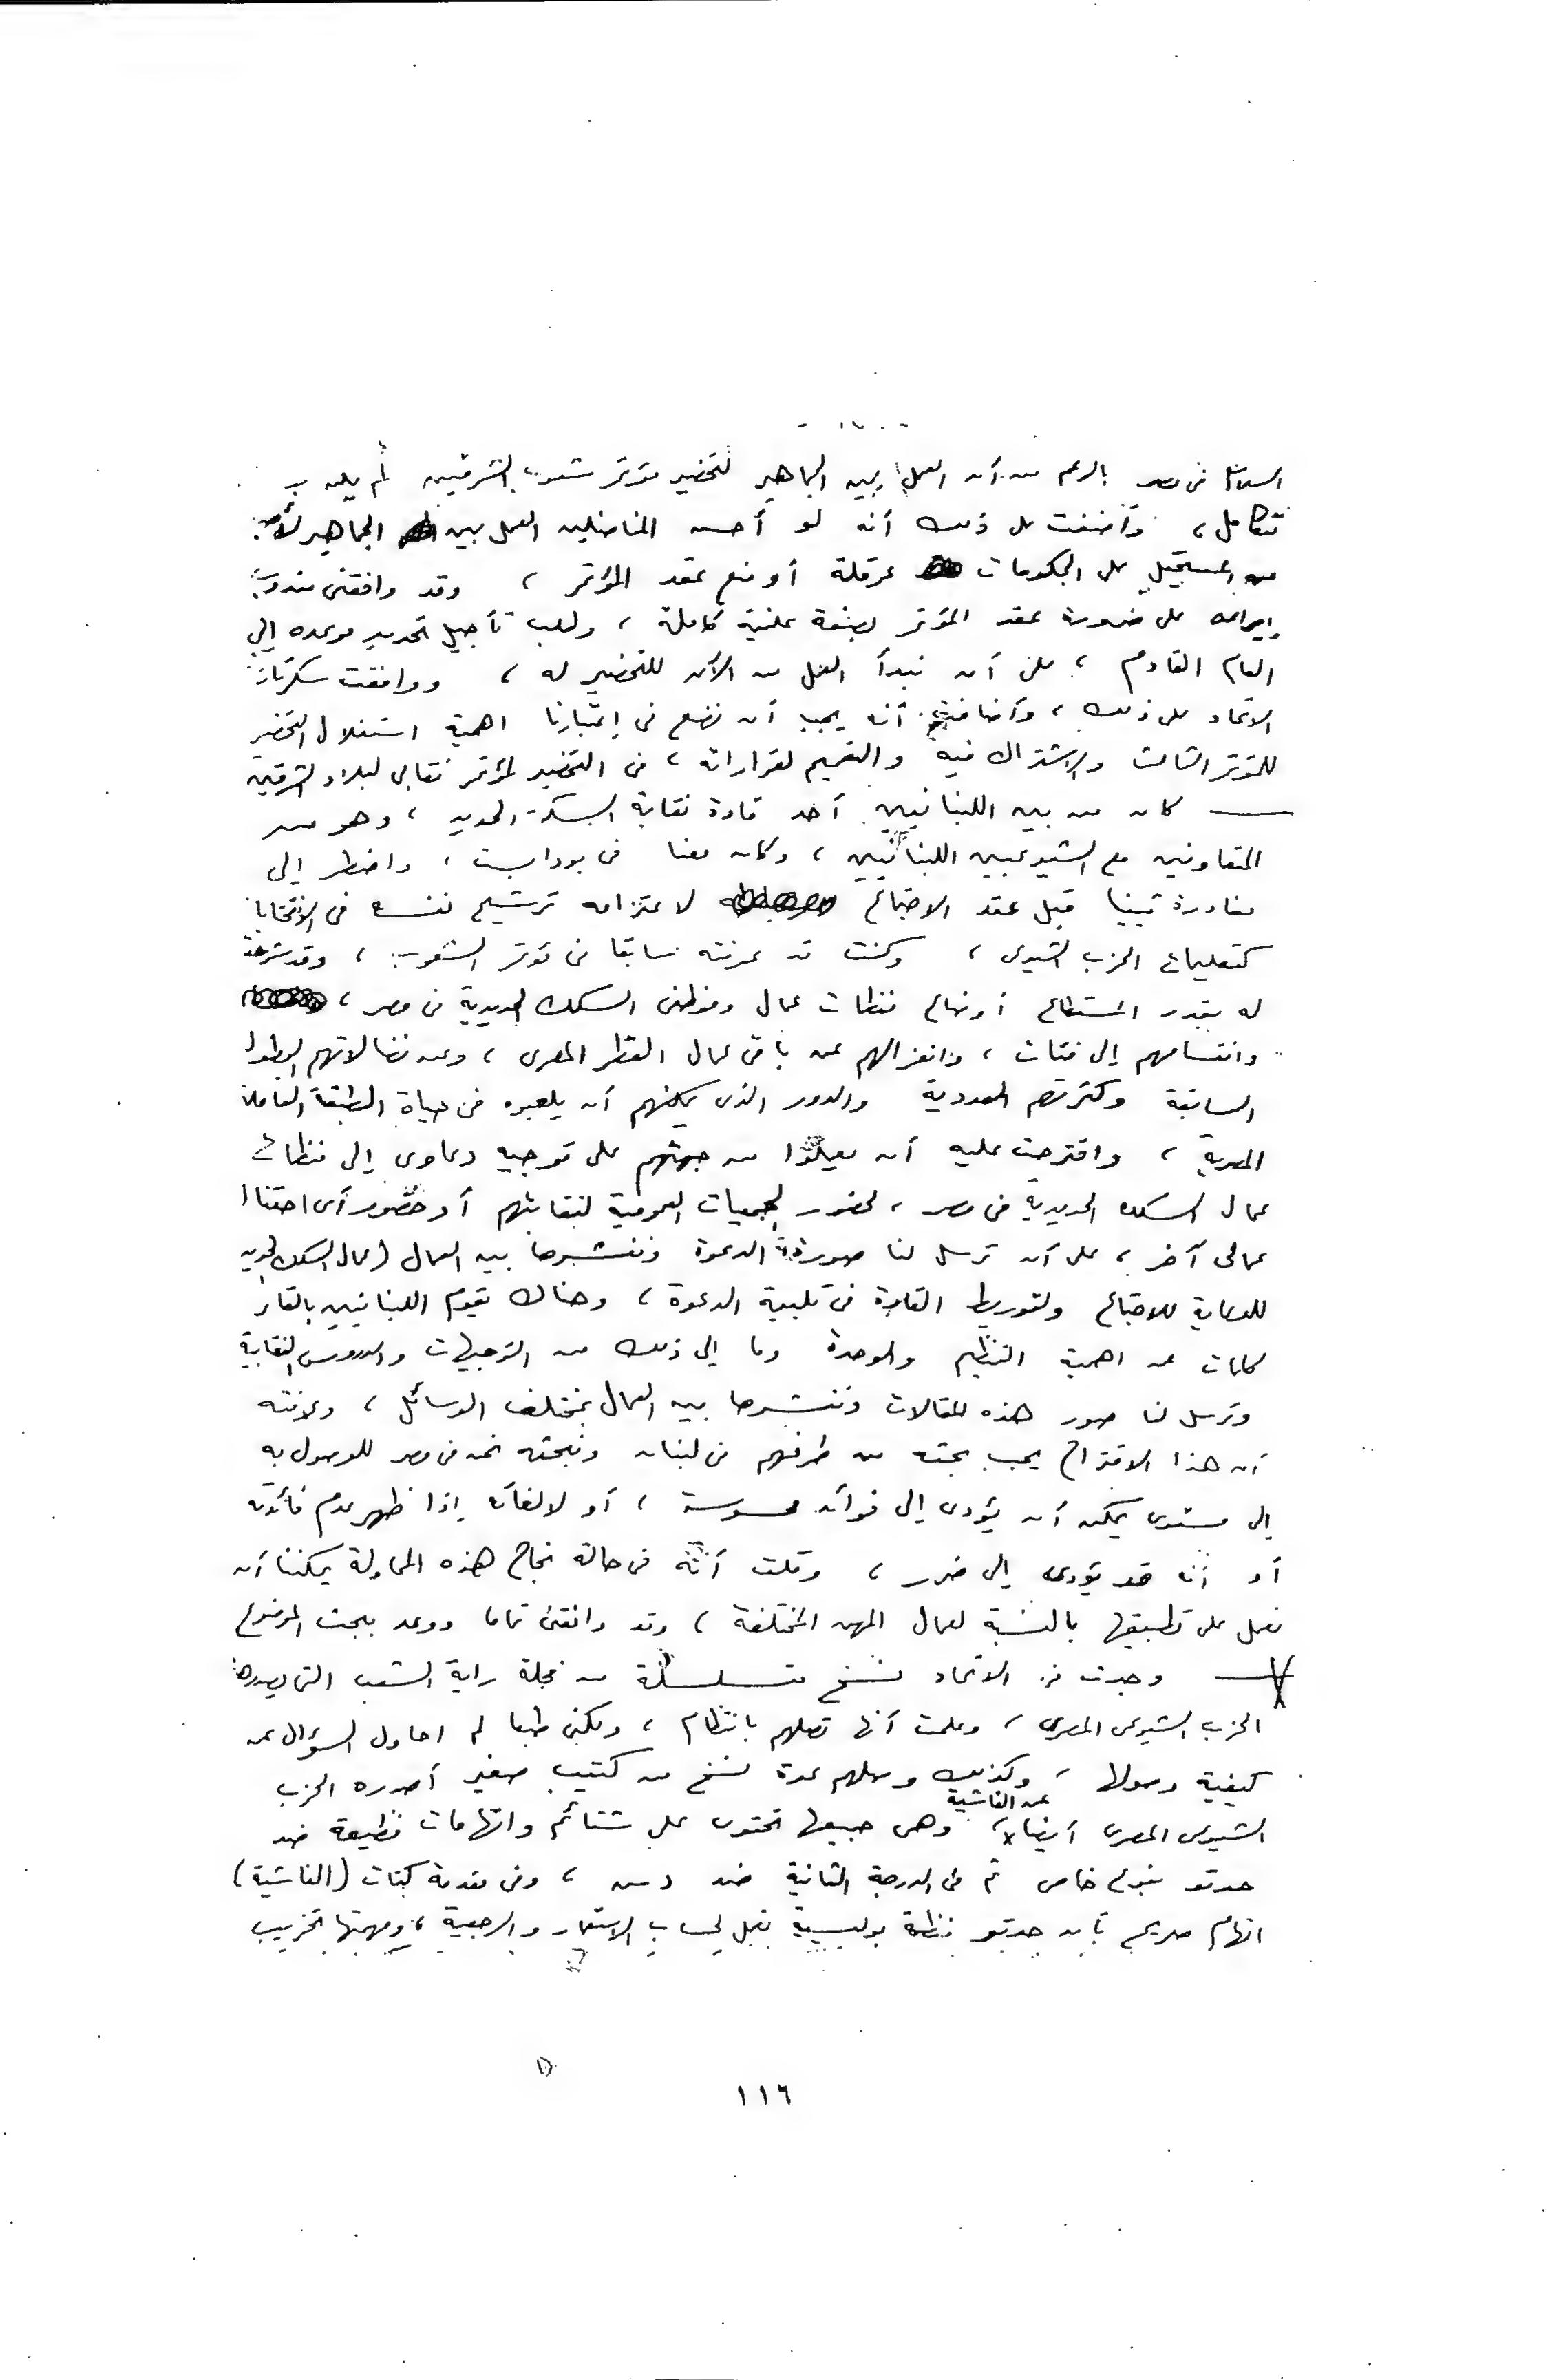 السلام فى مصر بالرغم من أن العمل بين الجماهير لتحضير مؤتمر شعوب الشرقين لم يكن
تتكامل ، وأضفت على ذلك أنه لو أحسن المناضلين العمل بين الجماهير لأصبح
من المستحيل على الحكومات عرقلة أو منع عقد المؤتمر ، وقد وافقنى مندوب
إيران على ضرورة عقد المؤتمر بصفة علنية كاملة ، وطلب تأجيل تحديد موعده إلى
العام القادم ، على أن نبدأ العمل من الآن للتحضير له ، ووافقت سكرتارية
الاتحاد على ذلك ، وأضافت أنه يجب أن نضع فى إعتبارنا اهمية استغلال التحضير
للمؤتمر الثالث والاشتراك فيه والتعميم لقراراته ، فى التحضير لمؤتمر نقابى لبلاد الشرقين
— كان من بين اللبنانيين أحد قادة نقابة السكة الحديد ، وهو من
المتعاونين مع الشيوعيين اللبنانيين ، وكان معنا فى بودابست ، واضطر إلى
مغادرة فيينا قبل عقد الاجتماع لاعتزامه ترشيح نفسه فى الانتخابات
كتعليمات الحزب الشيوعى ، وكنت قد عرفته سابقا فى مؤتمر الشعوب ، وقد شرحت
له بقدر المستطاع أوضاع منظمات عمال وموظفى السكك الحديدية فى مصر ،
وانقسامهم إلى فئات ، وانعزالهم عن باقى عمال القطر المصرى ، وعن نضالاتهم البطولية
السابقة وكثرتهم العددية والدور الذى يمكنهم أن يلعبوه فى حياة الطبقة العاملة
المصرية ، واقترحت عليه أن يعملوا من جهتهم على توجيه دعاوى إلى منظمات
عمال السكك الحديدية فى مصر ، لحضور الجمعيات العمومية لنقابتهم أو حضور أى احتفال
عمالى آخر ، على أن ترسل لنا صورة الدعوة وننشرها بين العمال (عمال السكك الحديد
للدعاية للاجتماع ولتوريط القادة فى تلبية الدعوة ، وهناك يقوم اللبنانيين بالقاء
كلمات عن اهمية التنظيم والوحدة وما إلى ذلك من التوجيهات والدروس النقابية
وترسل لنا صور هذه المقالات وننشرها بين العمال بمختلف الوسائل ، وعرفته
أن هذا الاقتراح يجب بحثه من طرفهم فى لبنان ونبحثه نحن فى مصر للوصول به
إلى مستوى يمكن أن يؤدى إلى فوائد محسوسة ، أو لالغائه إذا ظهر عدم فائدته
أو أنه قد يؤدى إلى ضرر ، وقلت أنه فى حالة نجاح هذه المحاولة يمكننا أن
نعمل على تطبيقها بالنسبة لعمال المهن المختلفة ، وقد وافقنى تماما ووعد ببحث الموضوع
— وجدت فى الاتحاد نسخ متسلسلة من مجلة راية الشعب التى يصدرها
الحزب الشيوعى المصرى ، وعلمت أنها تصلهم بانتظام ، ولكنى طبعا لم احاول السؤال عن
كيفية وصولها ، وكذلك وصلهم عدة نسخ من كتيب صغير أصدره الحزب
الشيوعى المصرى أيضا عن الفاشية ، وهى جميعها تحتوى على شتائم واتهامات فظيعة ضد
حدتو بنوع خاص ثم فى الدرجة الثانية ضد د.ش ، وفى مقدمة كتاب (الفاشية)
اتهام صريح بأن حدتو منظمة بوليسية تعمل لحساب الاستعمار والرجعية ، ومهمتها تخريب
١١٦